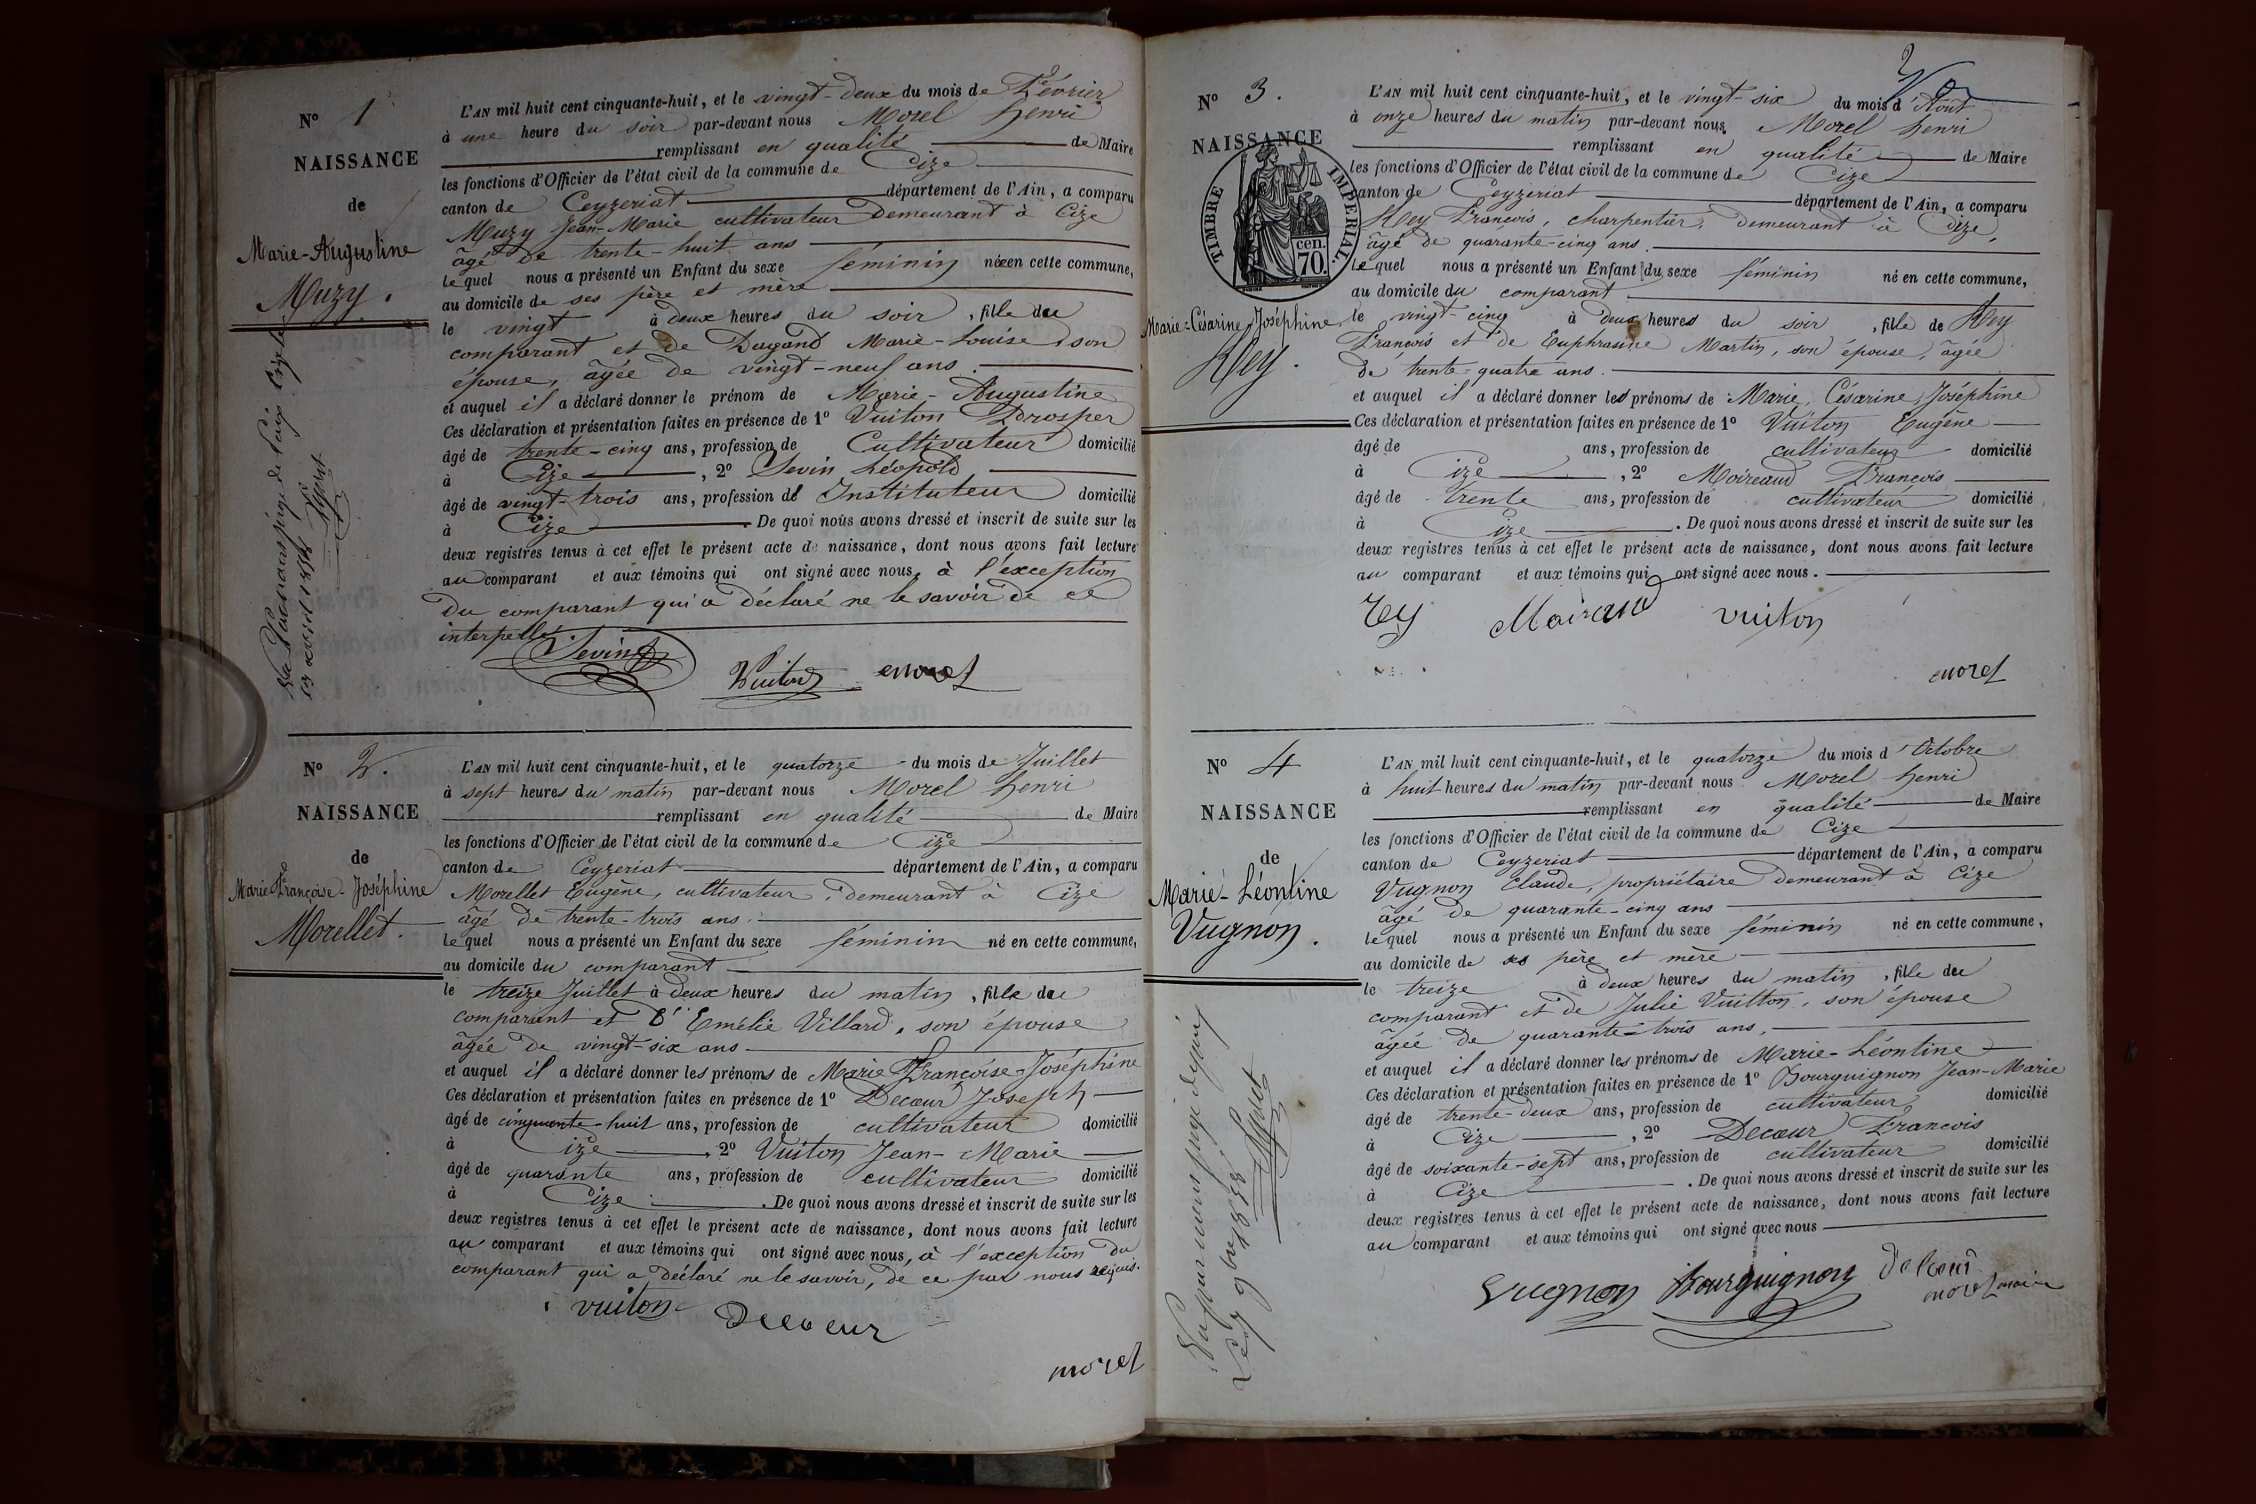 N° 1
NAISSANCE
de
Marie-Augustine
Muzy.
L'AN mil huit cent cinquante-huit, et le vingt-deux du mois de Février
à une heure du soir par-devant nous Morel henri
remplissant en qualité de Maire
les fonctions d'Officier de l'état civil de la commune de Cize
canton de Ceyzeriat département de l'Ain, a comparu
Muzy Jean-Marie cultivateur demeurant à Cize
âgé de trente-huit ans
lequel nous a présenté un Enfant du sexe féminin né en cette commune,
au domicile de ses père et mère
le vingt à deux heures du soir, fille du
comparant et de Dagand Marie-Louise, son
épouse, âgée de vingt-neuf ans.
et auquel il a déclaré donner le prénom de Marie-Augustine
Ces déclaration et présentation faites en présence de 1° Vuiton Prosper
âgé de trente-cinq ans, profession de Cultivateur domicilié
à Cize, 2° Sevin Léopold
âgé de vingt-trois ans, profession de Instituteur domicilié
à Cize. De quoi nous avons dressé et inscrit de suite sur les
deux registres tenus à cet effet le présent acte de naissance, dont nous avons fait lecture
au comparant et aux témoins qui ont signé avec nous, à l'exception
du comparant qui a déclaré ne le savoir de ce
interpellé.
Sevin Vuiton morel
13 avril 1858
N° 2.
NAISSANCE
de
Marie Françoise-Joséphine
Morellet.
L'AN mil huit cent cinquante-huit, et le quatorze du mois de Juillet
à sept heures du matin par-devant nous Morel henri
remplissant en qualité de Maire
les fonctions d'Officier de l'état civil de la commune de Cize
canton de Ceyzeriat département de l'Ain, a comparu
Morellet Eugène, cultivateur, demeurant à Cize
âgé de trente-trois ans.
lequel nous a présenté un Enfant du sexe féminin né en cette commune,
au domicile du comparant
le treize Juillet à deux heures du matin, fille du
comparant et d'Emélie Villard, son épouse
âgée de vingt-six ans
et auquel il a déclaré donner les prénoms de Marie Françoise-Joséphine
Ces déclaration et présentation faites en présence de 1° Decœur Joseph
âgé de cinquante-huit ans, profession de cultivateur domicilié
à Cize, 2° Vuiton Jean-Marie
âgé de quarante ans, profession de cultivateur domicilié
à Cize. De quoi nous avons dressé et inscrit de suite sur les
deux registres tenus à cet effet le présent acte de naissance, dont nous avons fait lecture
au comparant et aux témoins qui ont signé avec nous, à l'exception du
comparant qui a déclaré ne le savoir, de ce par nous requis.
vuiton Decoeur
morel
N° 3.
NAISSANCE
TIMBRE IMPERIAL.
cen.
70.
Marie-Césarine Joséphine
Rey.
L'AN mil huit cent cinquante-huit, et le vingt-six du mois d'Aout
à onze heures du matin par-devant nous Morel henri
remplissant en qualité de Maire
les fonctions d'Officier de l'état civil de la commune de Cize
canton de Ceyzeriat département de l'Ain, a comparu
Rey François, charpentier, demeurant à Cize,
âgé de quarante-cinq ans.
lequel nous a présenté un Enfant du sexe féminin né en cette commune,
au domicile du comparant
le vingt-cinq à deux heures du soir, fille de Rey
François et de Euphrasine Martin, son épouse, âgée
de trente-quatre ans.
et auquel il a déclaré donner les prénoms de Marie, Césarine, Joséphine
Ces déclaration et présentation faites en présence de 1° Vuiton Eugène
âgé de ans, profession de cultivateur domicilié
à Cize, 2° Moireaud François
âgé de trente ans, profession de cultivateur domicilié
à Cize. De quoi nous avons dressé et inscrit de suite sur les
deux registres tenus à cet effet le présent acte de naissance, dont nous avons fait lecture
au comparant et aux témoins qui ont signé avec nous.
rey Moiraud vuiton
morel
N° 4
NAISSANCE
de
Marie-Léontine
Vugnon.
L'AN mil huit cent cinquante-huit, et le quatorze du mois d'Octobre
à huit heures du matin par-devant nous Morel henri
remplissant en qualité de Maire
les fonctions d'Officier de l'état civil de la commune de Cize
canton de Ceyzeriat département de l'Ain, a comparu
Vugnon Claude, propriétaire demeurant à Cize
âgé de quarante-cinq ans
lequel nous a présenté un Enfant du sexe féminin né en cette commune,
au domicile de ses père et mère
le treize à deux heures du matin, fille du
comparant et de Julie Vuitton, son épouse
âgée de quarante-trois ans,
et auquel il a déclaré donner les prénoms de Marie-Léontine
Ces déclaration et présentation faites en présence de 1° Bourguignon Jean-Marie
âgé de trente-deux ans, profession de cultivateur domicilié
à Cize, 2° Decœur Francois
âgé de soixante-sept ans, profession de cultivateur domicilié
à Cize. De quoi nous avons dressé et inscrit de suite sur les
deux registres tenus à cet effet le présent acte de naissance, dont nous avons fait lecture
au comparant et aux témoins qui ont signé avec nous
Vugnon Bourguignon Decœur
morel maire
Le 9 9bre 1858